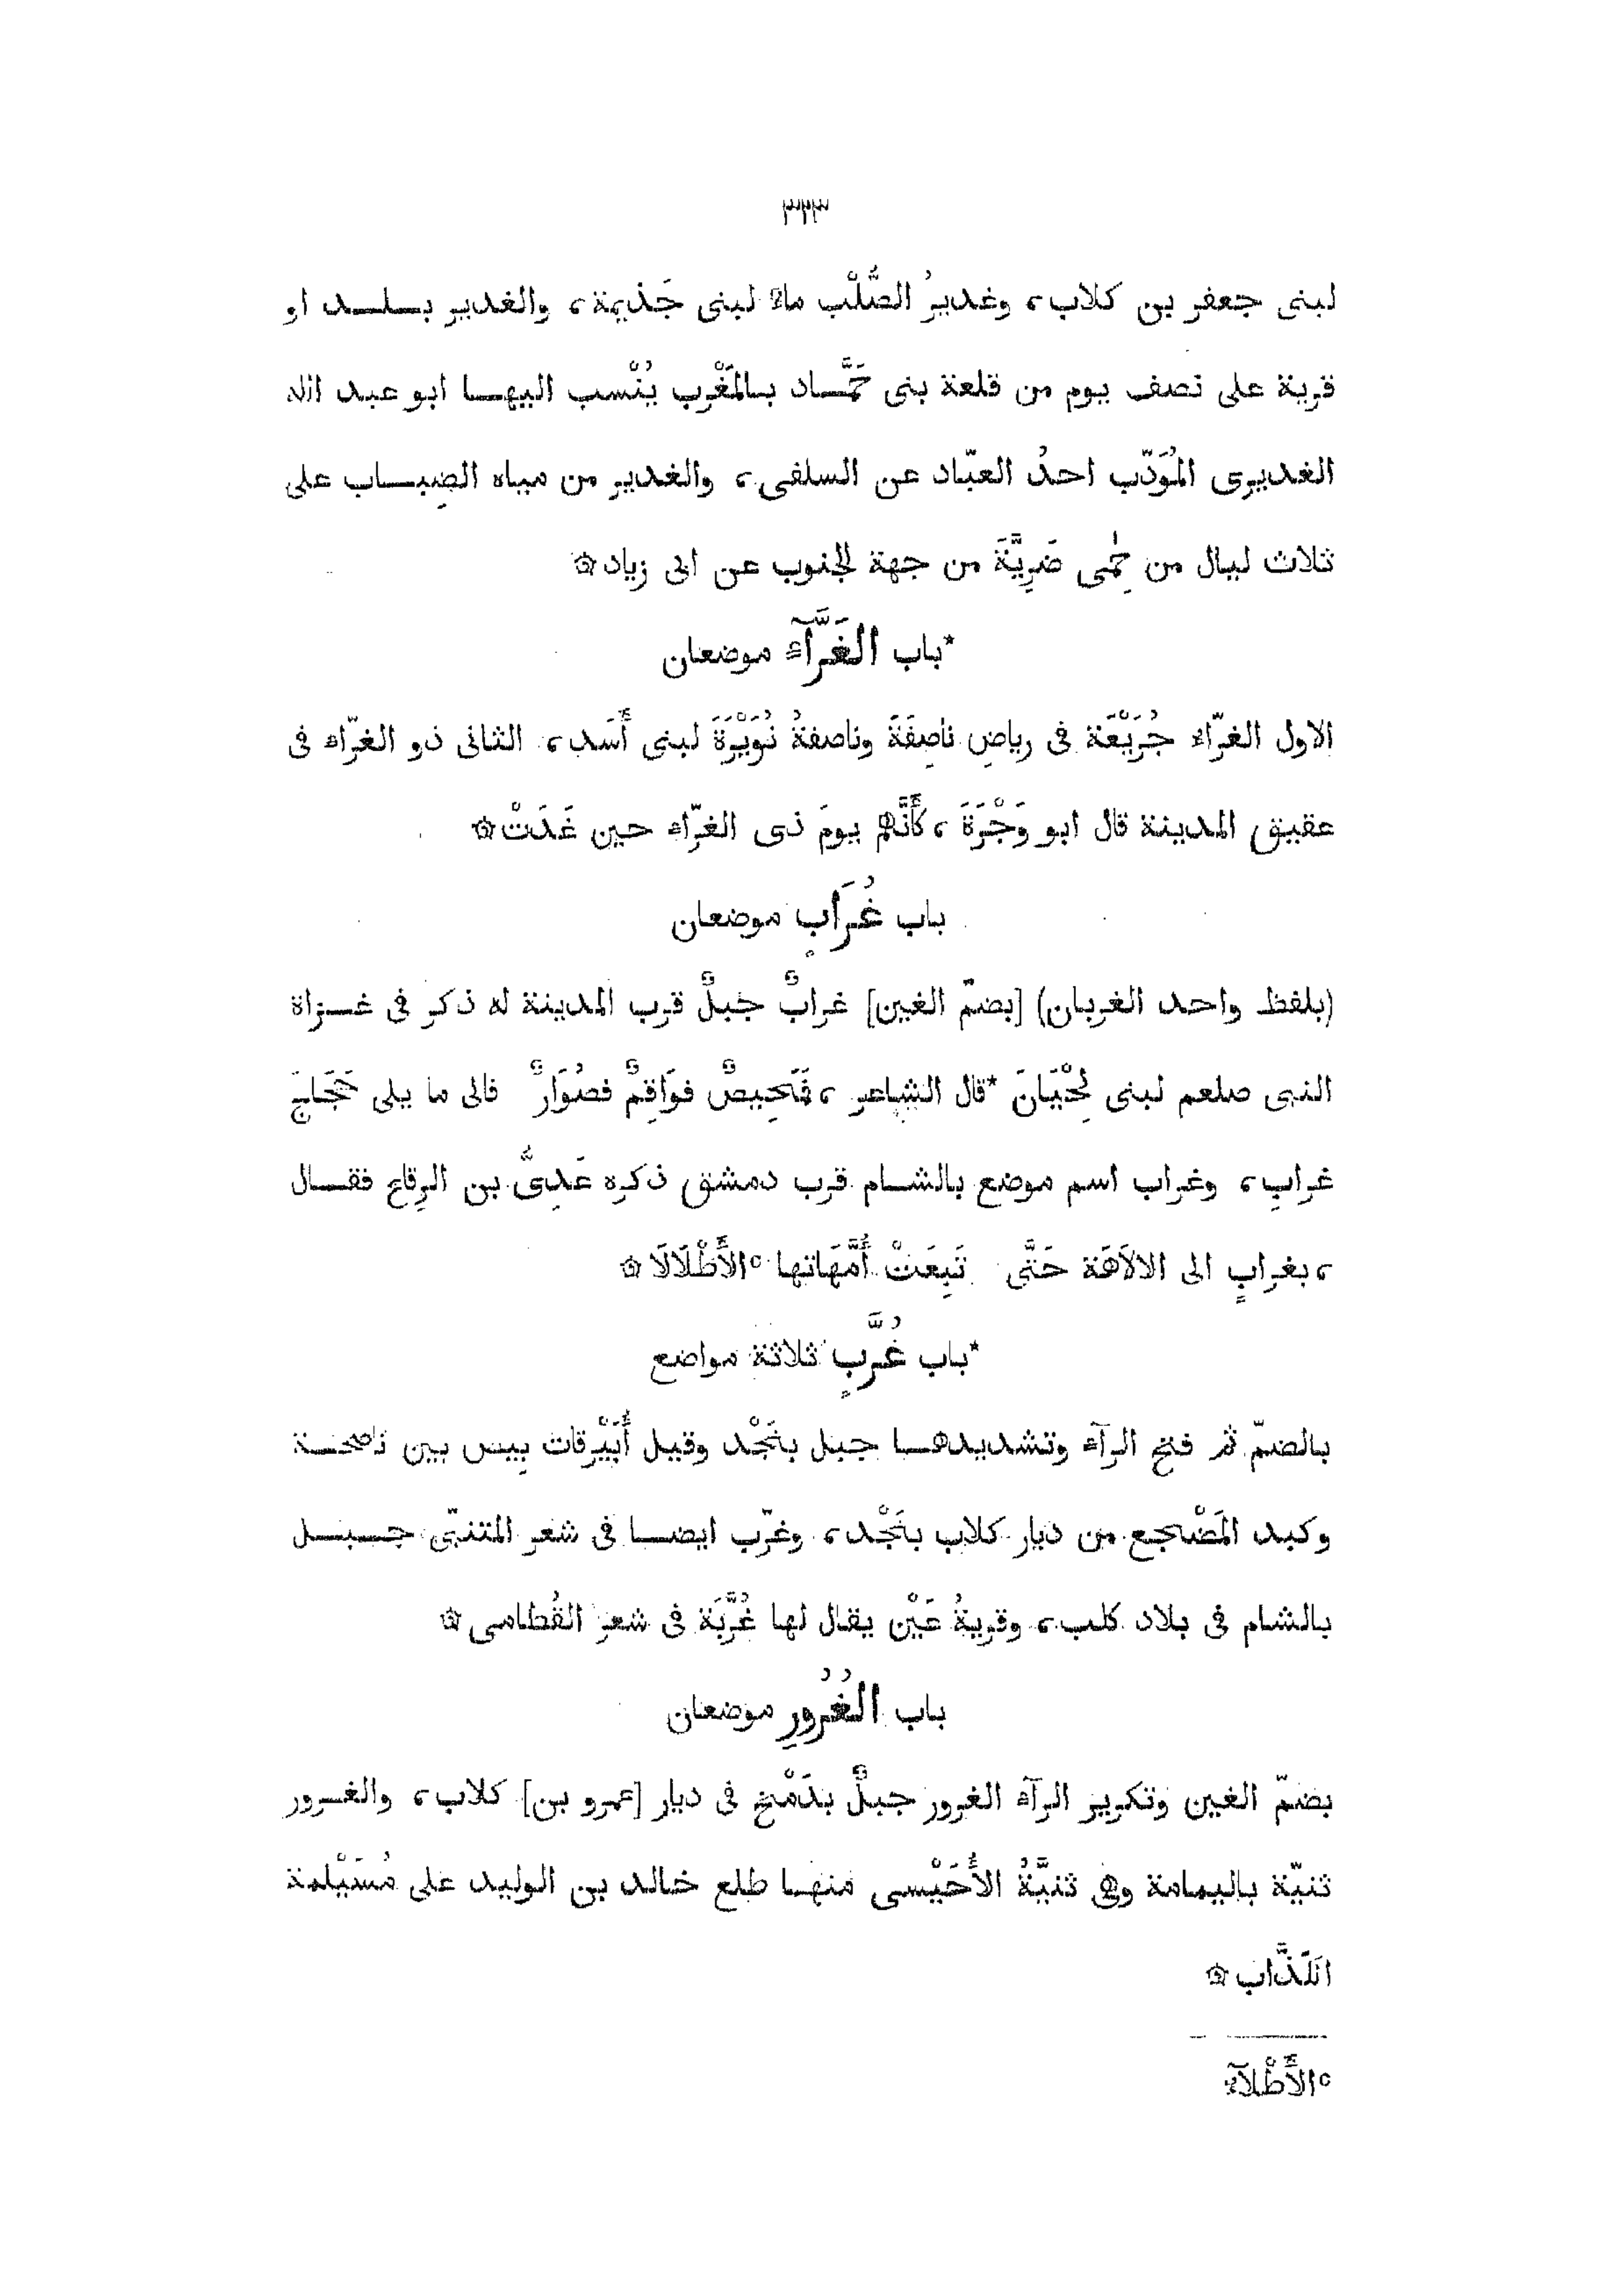 ٣٢٣
لبنى جعفر بن كلاب، وغديرُ الصُّلْب ماءٌ لبنى جَذيمة، والغدير بلد او
قرية على نصف يوم من قلعة بنى حَمَّاد بالمَغْرب يُنْسب اليها ابو عبد الله
الغديرى المُوَدّب احدُ العبّاد عن السلفى، والغدير من مياه الضِباب على
ثلاث ليال من حِمٰى ضَرِيَّةَ من جهة الجنوب عن ابى زياد۞
*باب الغَرَّآءِ موضعان
الاول الغرّاء جُرَيْعَة فى رياضِ ناصِفَةَ وناصفةُ نُوَيْرَةَ لبنى أَسَد، الثانى ذو الغرّاء فى
عقيق المدينة قال ابو وَجْرَةَ، كأَنَّهم يومَ ذى الغرّاء حين غَدَتْ۞
باب غُرَابٍ موضعان
(بلفظ واحد الغربان) [بضمّ الغين] غرابٌ جبلٌ قرب المدينة له ذكر فى غزاة
النبى صلعم لبنى لِحْيَانَ *قال الشاعر، فَمَحِيصٌ فوَاقِمٌ فصُوَارٌ فالى ما يلى حَجَاجَ
غرابِ، وغراب اسم موضع بالشام قرب دمشق ذكره عَدِىُّ بن الرِقاع فقال
، بغرابٍ الى الالَاهَة حَتَّى تَبِعَتْ أُمَّهَاتها ᶜالأَطْلَالَا۞
*باب غُرَّبٍ ثلاثة مواضع
بالضمّ ثم فتح الرآء وتشديدها جبل بنَجْد وقيل أُبَيْرقات بِيص بين ناصحة
وكبد المَضْجع من ديار كلاب بنَجْد، وغرّب ايضا فى شعر المتنبّى جبل
بالشام فى بلاد كلب، وقريةُ عَيْن يقال لها غُرَّبَة فى شعر القُطامى۞
باب الغُرُورِ موضعان
بضمّ الغين وتكرير الرآء الغرور جبلٌ بدَمْخ فى ديار [عمرو بن] كلاب، والغرور
ثنيّة باليمامة وهى ثنيَّةُ الأُحَيْسى منها طلع خالد بن الوليد على مُسَيْلمة
الكَذَّاب۞
ᶜالأَطْلآءَ